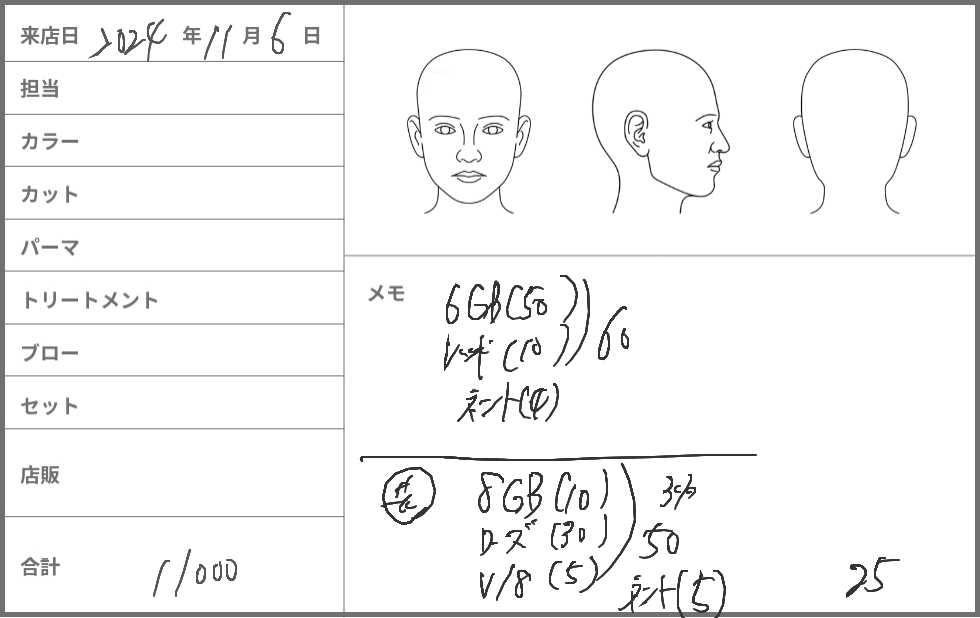 来店日 2024 年 11 月 6 日
担当
カラー
カット
パーマ
トリートメント
ブロー
セット
店販
合計 11000
メモ
6GB(50)
レッド(10) 60
ネント(4)
8GB(10) 3%
ローズ(30) 50
V/8(5)
ネント(5)
25